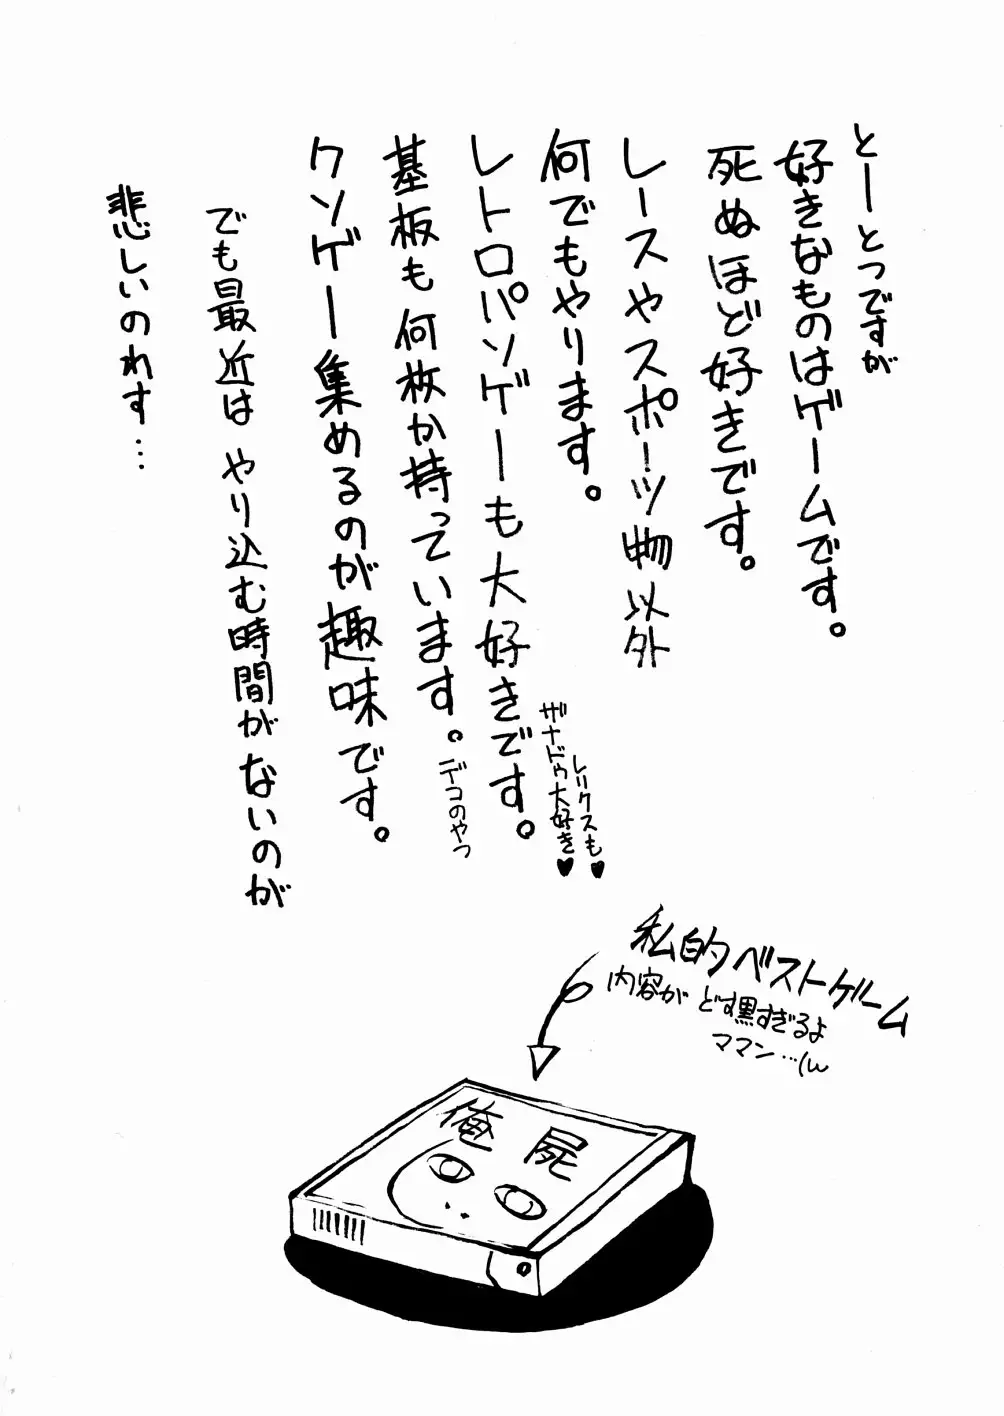 とーとつですが
好きなものはゲームです。
死ぬほど好きです。
レースやスポーツ物以外
何でもやります。
レトロパソゲーも大好きです。
レリクスも♥
ザナドゥ大好き♥
基板も何枚か持っています。
デコのやつ
クソゲー集めるのが趣味です。
でも最近はやり込む時間がないのが
悲しいのれす…
私的ベストゲーム
内容がどす黒すぎるよ
ママン…(ん
俺屍